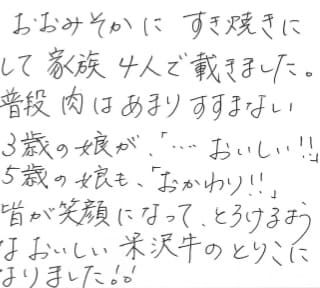 おおみそかに すき焼きに
して 家族 4人で載きました。
普段 肉はあまりすすまない
3歳の娘が、「… おいしい!!」
5歳の娘も、「おかわり!!」
皆が笑顔になって、とろけるよう
なおいしい 米沢牛のとりこに
なりました!!